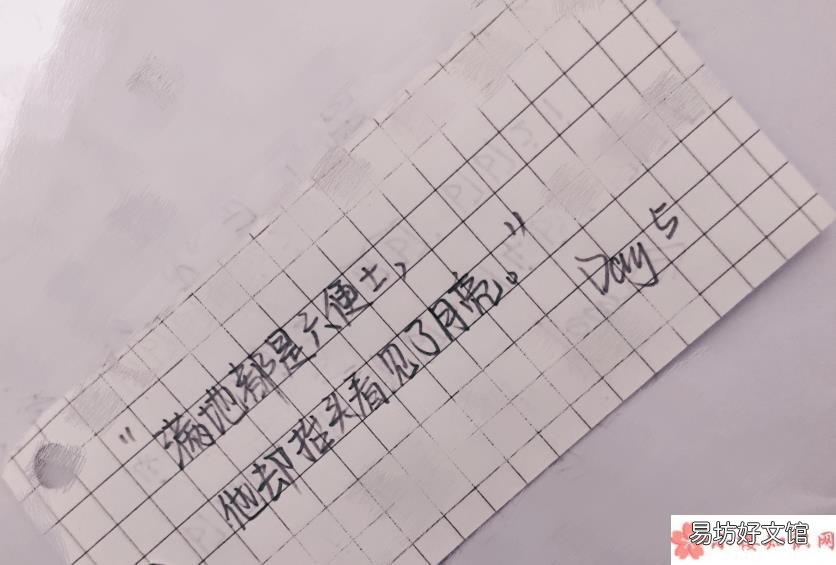 “满地都是六便士，
他却抬头看见了月亮。”
Day 5
易坊好文馆
识网